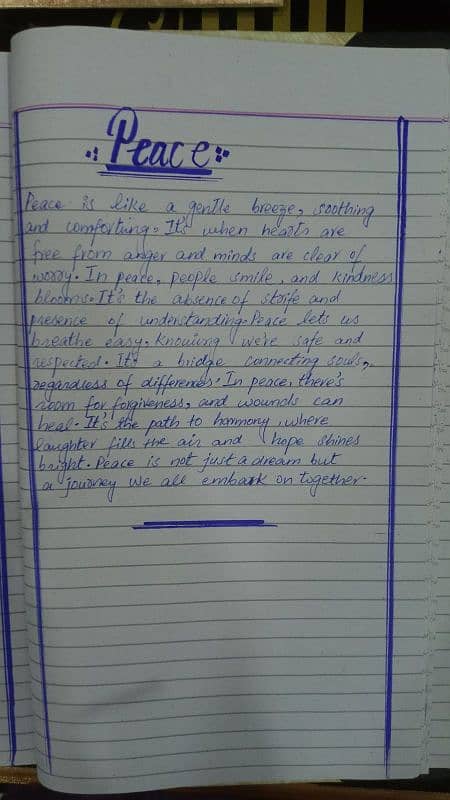 Peace
Peace is like a gentle breeze, soothing
and comforting. It's when hearts are
free from anger and minds are clear of
worry. In peace, people smile, and kindness
blooms. It's the absence of strife and
presence of understanding. Peace lets us
breathe easy, knowing we're safe and
respected. It's a bridge connecting souls,
regardless of differences. In peace, there's
room for forgiveness, and wounds can
heal. It's the path to harmony, where
laughter fills the air and hope shines
bright. Peace is not just a dream but
a journey we all embark on together.